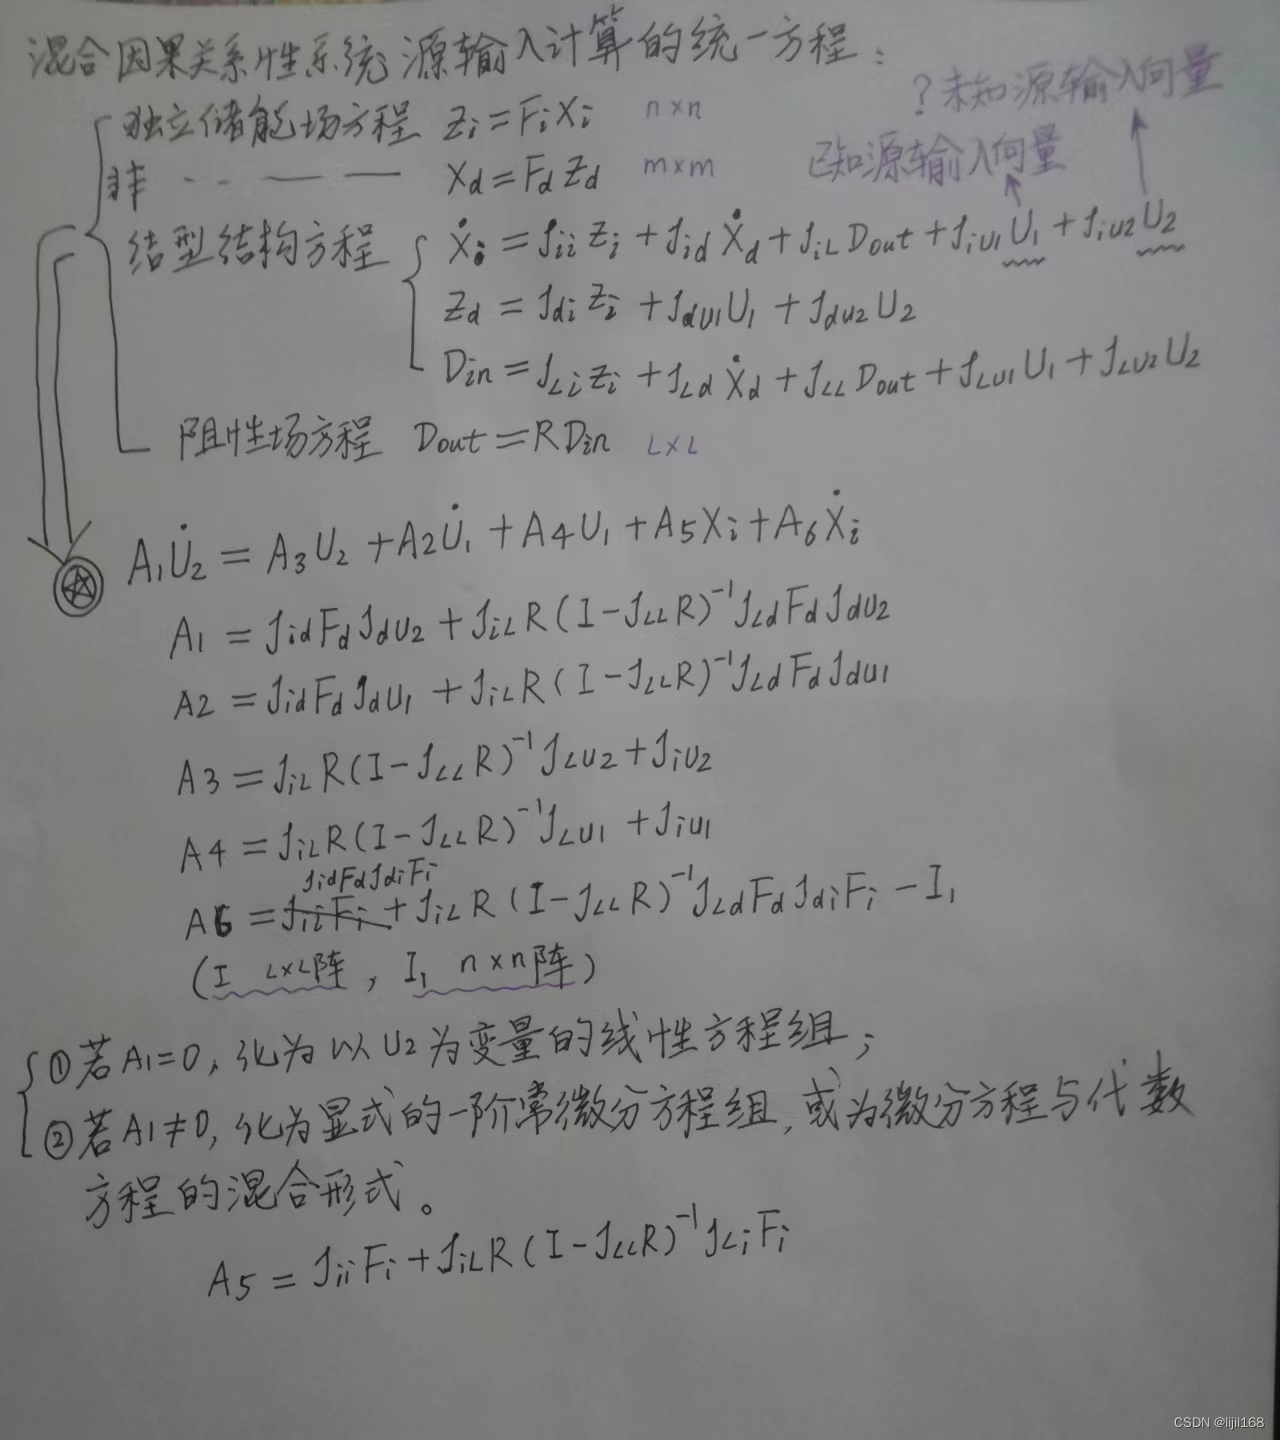 混合因果关系性系统源输入计算的统一方程：
?未知源输入向量
独立储能场方程 Zi = FiXi n×n
已知源输入向量
非 - - — — Xd = FdZd m×m
结型结构方程 Ẋi = JiiZi + JidẊd + JiLDout + JiU1U1 + JiU2U2
Zd = JdiZi + JdU1U1 + JdU2U2
Din = JLiZi + JLdẊd + JLLDout + JLU1U1 + JLU2U2
阻性场方程 Dout = RDin L×L
A1U̇2 = A3U2 + A2U̇1 + A4U1 + A5Xi + A6Ẋi
A1 = JidFdJdU2 + JiLR(I-JLLR)⁻¹JLdFdJdU2
A2 = JidFdJdU1 + JiLR(I-JLLR)⁻¹JLdFdJdU1
A3 = JiLR(I-JLLR)⁻¹JLU2 + JiU2
A4 = JiLR(I-JLLR)⁻¹JLU1 + JiU1
JidFdJdiFi
A6 = JiiFi + JiLR(I-JLLR)⁻¹JLdFdJdiFi - I1
(I L×L阵, I1 n×n阵)
①若A1=0, 化为以U2为变量的线性方程组;
②若A1≠0, 化为显式的一阶常微分方程组, 或为微分方程与代数
方程的混合形式。
A5 = JiiFi + JiLR(I-JLLR)⁻¹JLiFi
CSDN @lijil168